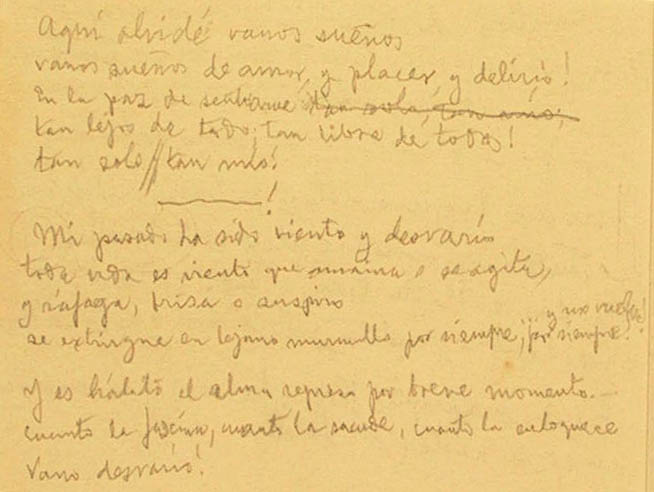 Aquí olvidé vanos sueños
vanos sueños de amor, y placer, y delirio!
En la paz de sentirme tan solo, tan mío,
tan lejos de todo; tan libre de todos!
tan solo // tan mío!
!
Mi pasado ha sido viento y desvarío
toda vida es viento que amaina o se agita,
y ráfaga, brisa o suspiro
se extingue en lejano murmullo por siempre, por siempre! ... y no vuelve!
Y es hálito el alma represa por breve momento.—
cuanto la fascina, cuanto la sacude, cuanto la enloquece
Vano desvarío!